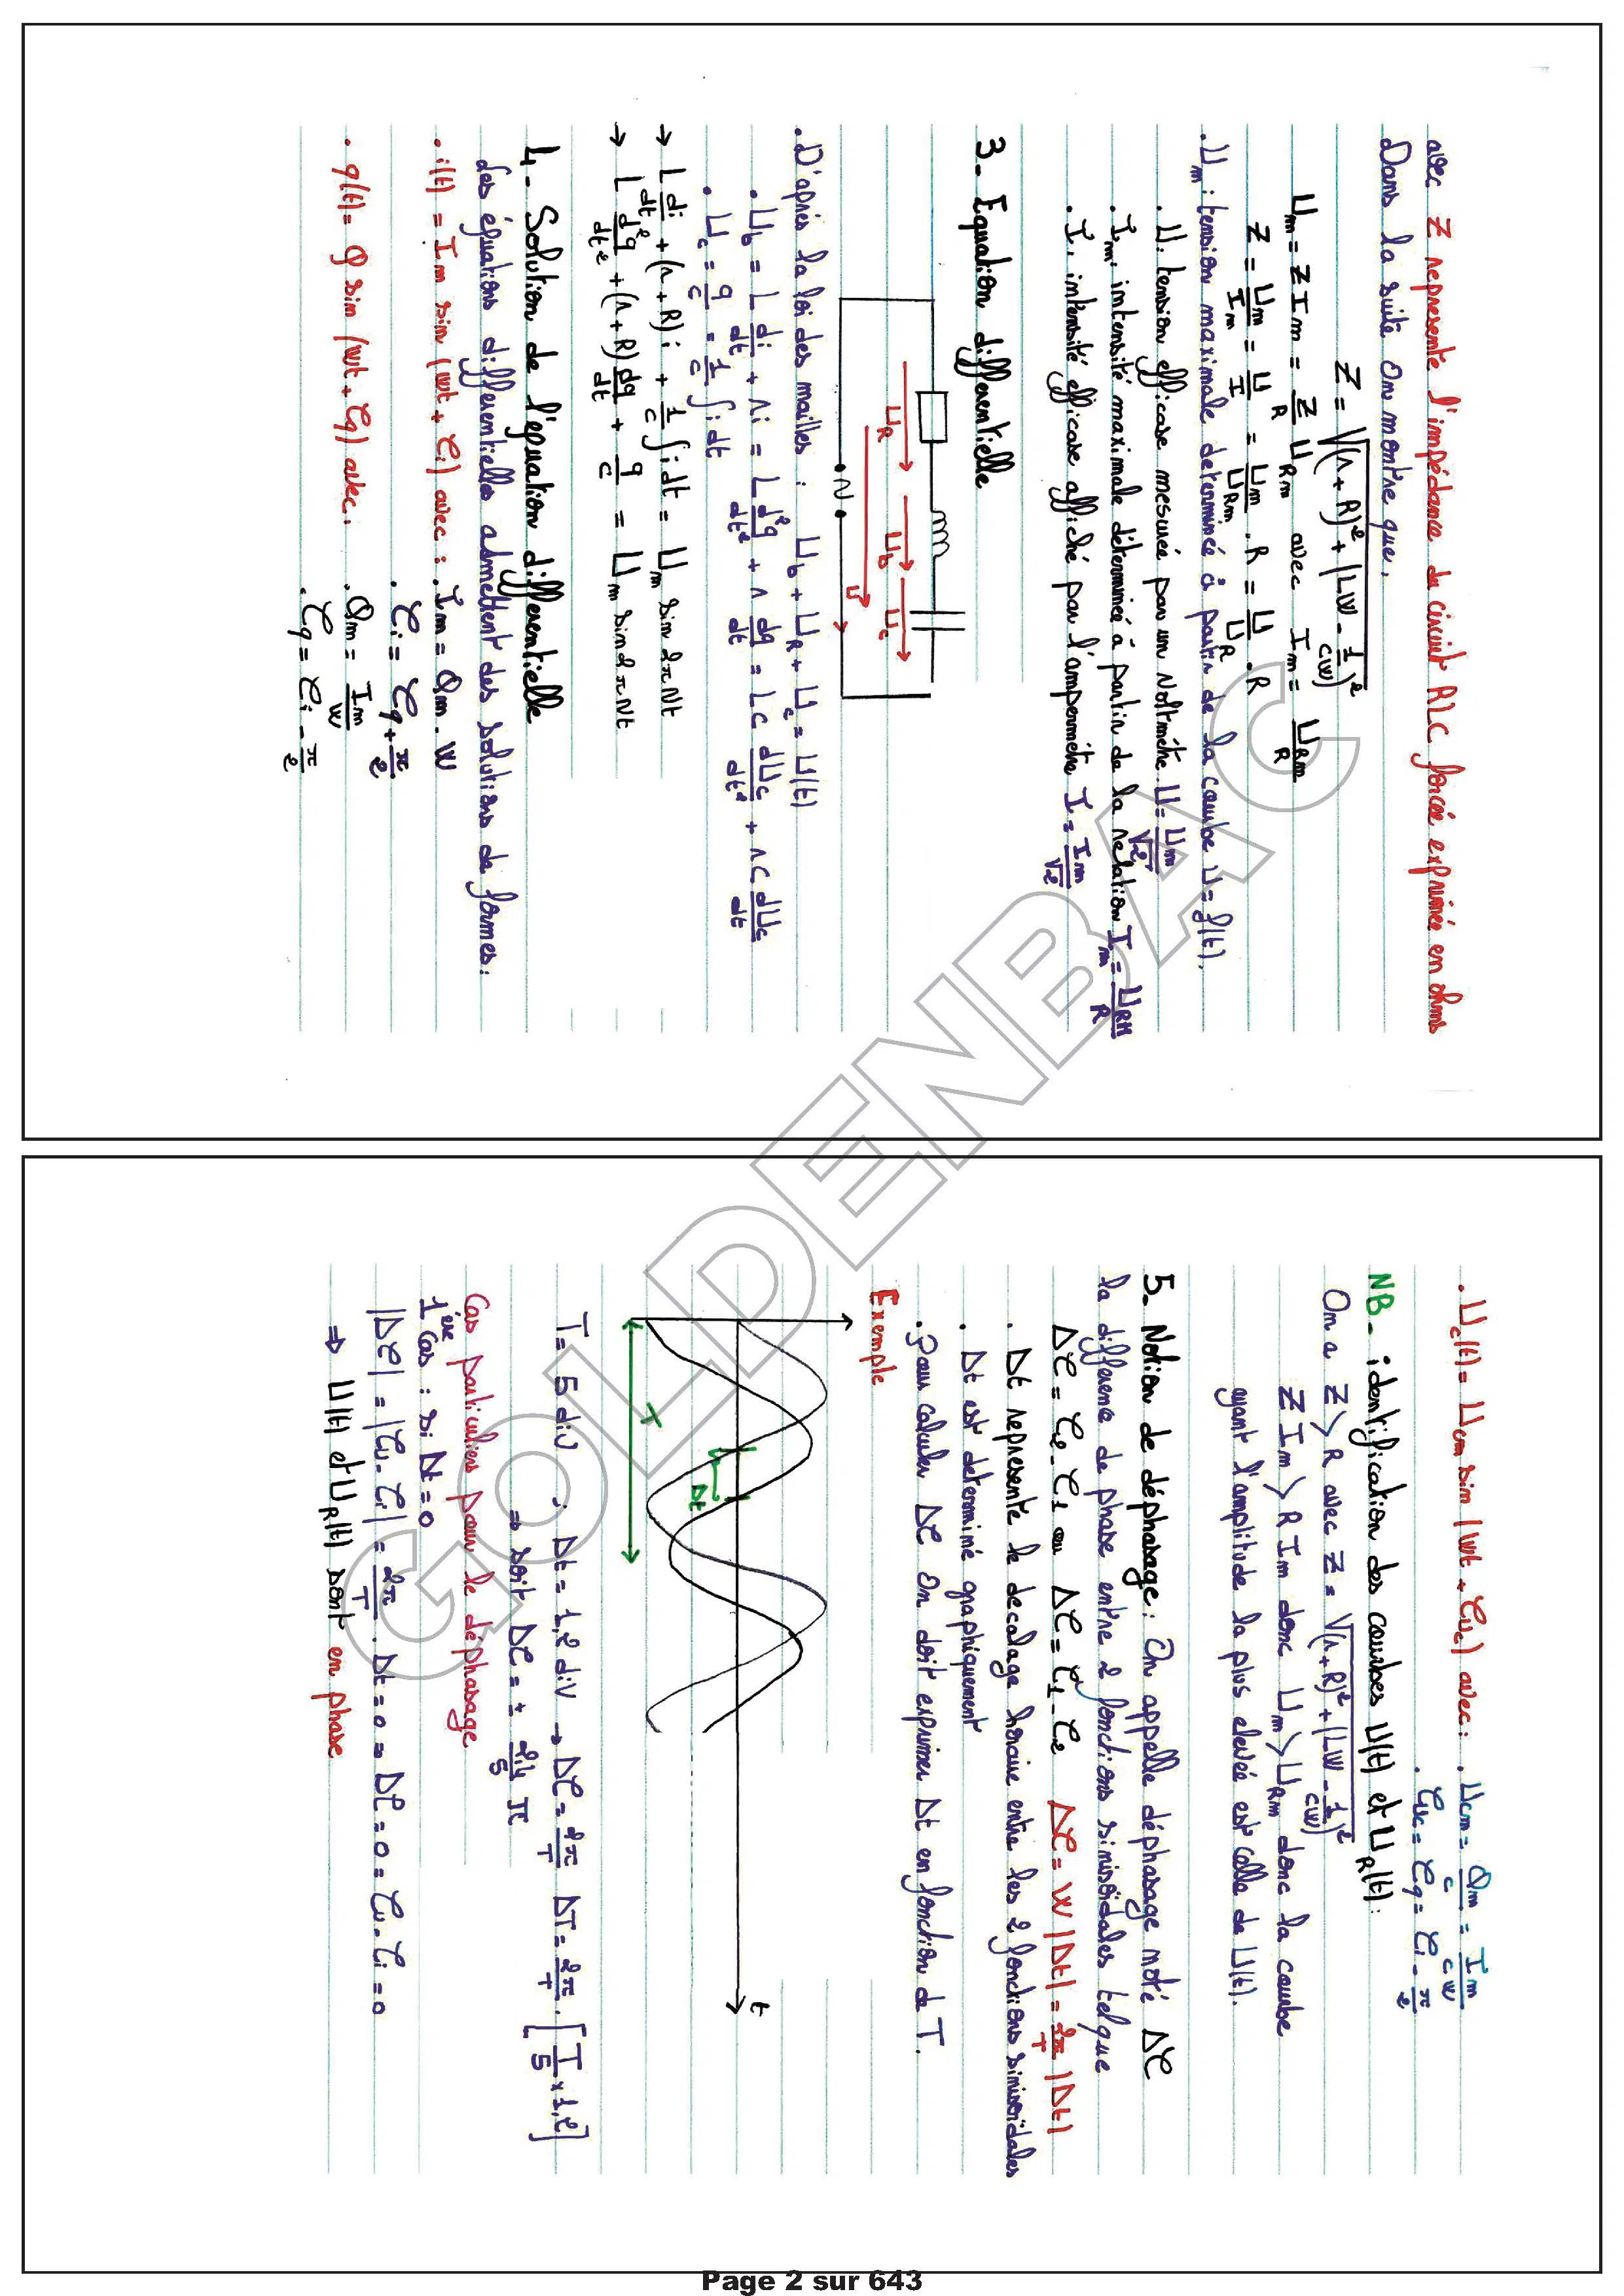 avec Z represente l'impédance du circuit RLC forcée exprimée en ohms
Dans la suite On montre que,
Z = √((r + R)² + (Lw - 1/cw)²)
Um = Z Im = Z/R URm avec Im = URm/R
Z = Um/Im = U/I = Um/URm . R = U/UR . R
. Um : tension maximale determinée à partir de la courbe U = f(t).
. U: tension efficase mesurée par un Voltmétre U = Um/√2
. Im: intensité maximale déterminée à partir de la relation Im = URM/R
. I, intensité efficase affiché par l'ampermétre I = Im/√2
3- Equation differentielle
UR Ub Uc
U
N
. D'après la loi des mailles : Ub + UR + Uc = U(t)
. Ub = L di/dt + ri = L d²q/dt² + r dq/dt = LC d²Uc/dt² + rC dUc/dt
. Uc = q/c = 1/c ∫ i dt
→ L di/dt + (r + R)i + 1/c ∫ i dt = Um sin 2πNt
→ L d²q/dt² + (r + R) dq/dt + q/c = Um sin 2πNt
4- Solution de l'équation differentielle
des équations differentielles admettent des solutions de formes:
. i(t) = Im sin (wt + φi) avec : . Im = Qm . w
. φi = φq + π/2
. q(t) = Q sin (wt + φq) avec . . Qm = Im/w
. φq = φi - π/2
. Uc(t) = Ucm sin (wt + φuc) avec : . Ucm = Qm/c = Im/cw
. φuc = φq = φi - π/2
NB- identification des courbes U(t) et UR(t) :
On a Z > R avec Z = √((r + R)² + (Lw - 1/cw)²)
Z Im > R Im donc Um > URm donc la courbe
ayant l'amplitude la plus elevée est celle de U(t).
5- Notion de déphasage : On appelle déphasage noté Δφ
la différence de phase entre 2 fonctions sinisoidales telque
Δφ = φ2 - φ1 ou Δφ = φ1 - φ2 Δφ = w |Δt| = 2π/T |Δt|
. Δt represente le decalage horaire entre les 2 fonctions sinisoidales
. Δt est determiné graphiquement
. Pour calculer Δφ On doit exprimer Δt en fonction de T.
Exemple
t
Δt
T
T = 5 div ; Δt = 1,2 div → Δφ = 2π/T ΔT = 2π/T . [T/5 × 1,2]
⇒ soit Δφ = ± 2,4/5 π
Cas particuliers pour le déphasage
1ere Cas : si Δt = 0
|Δφ| = |φu - φi| = 2π/T . Δt = 0 ⇒ Δφ = 0 = φu - φi = 0
⇒ U(t) et UR(t) sont en phase
GOLDENBAC
Page 2 sur 643